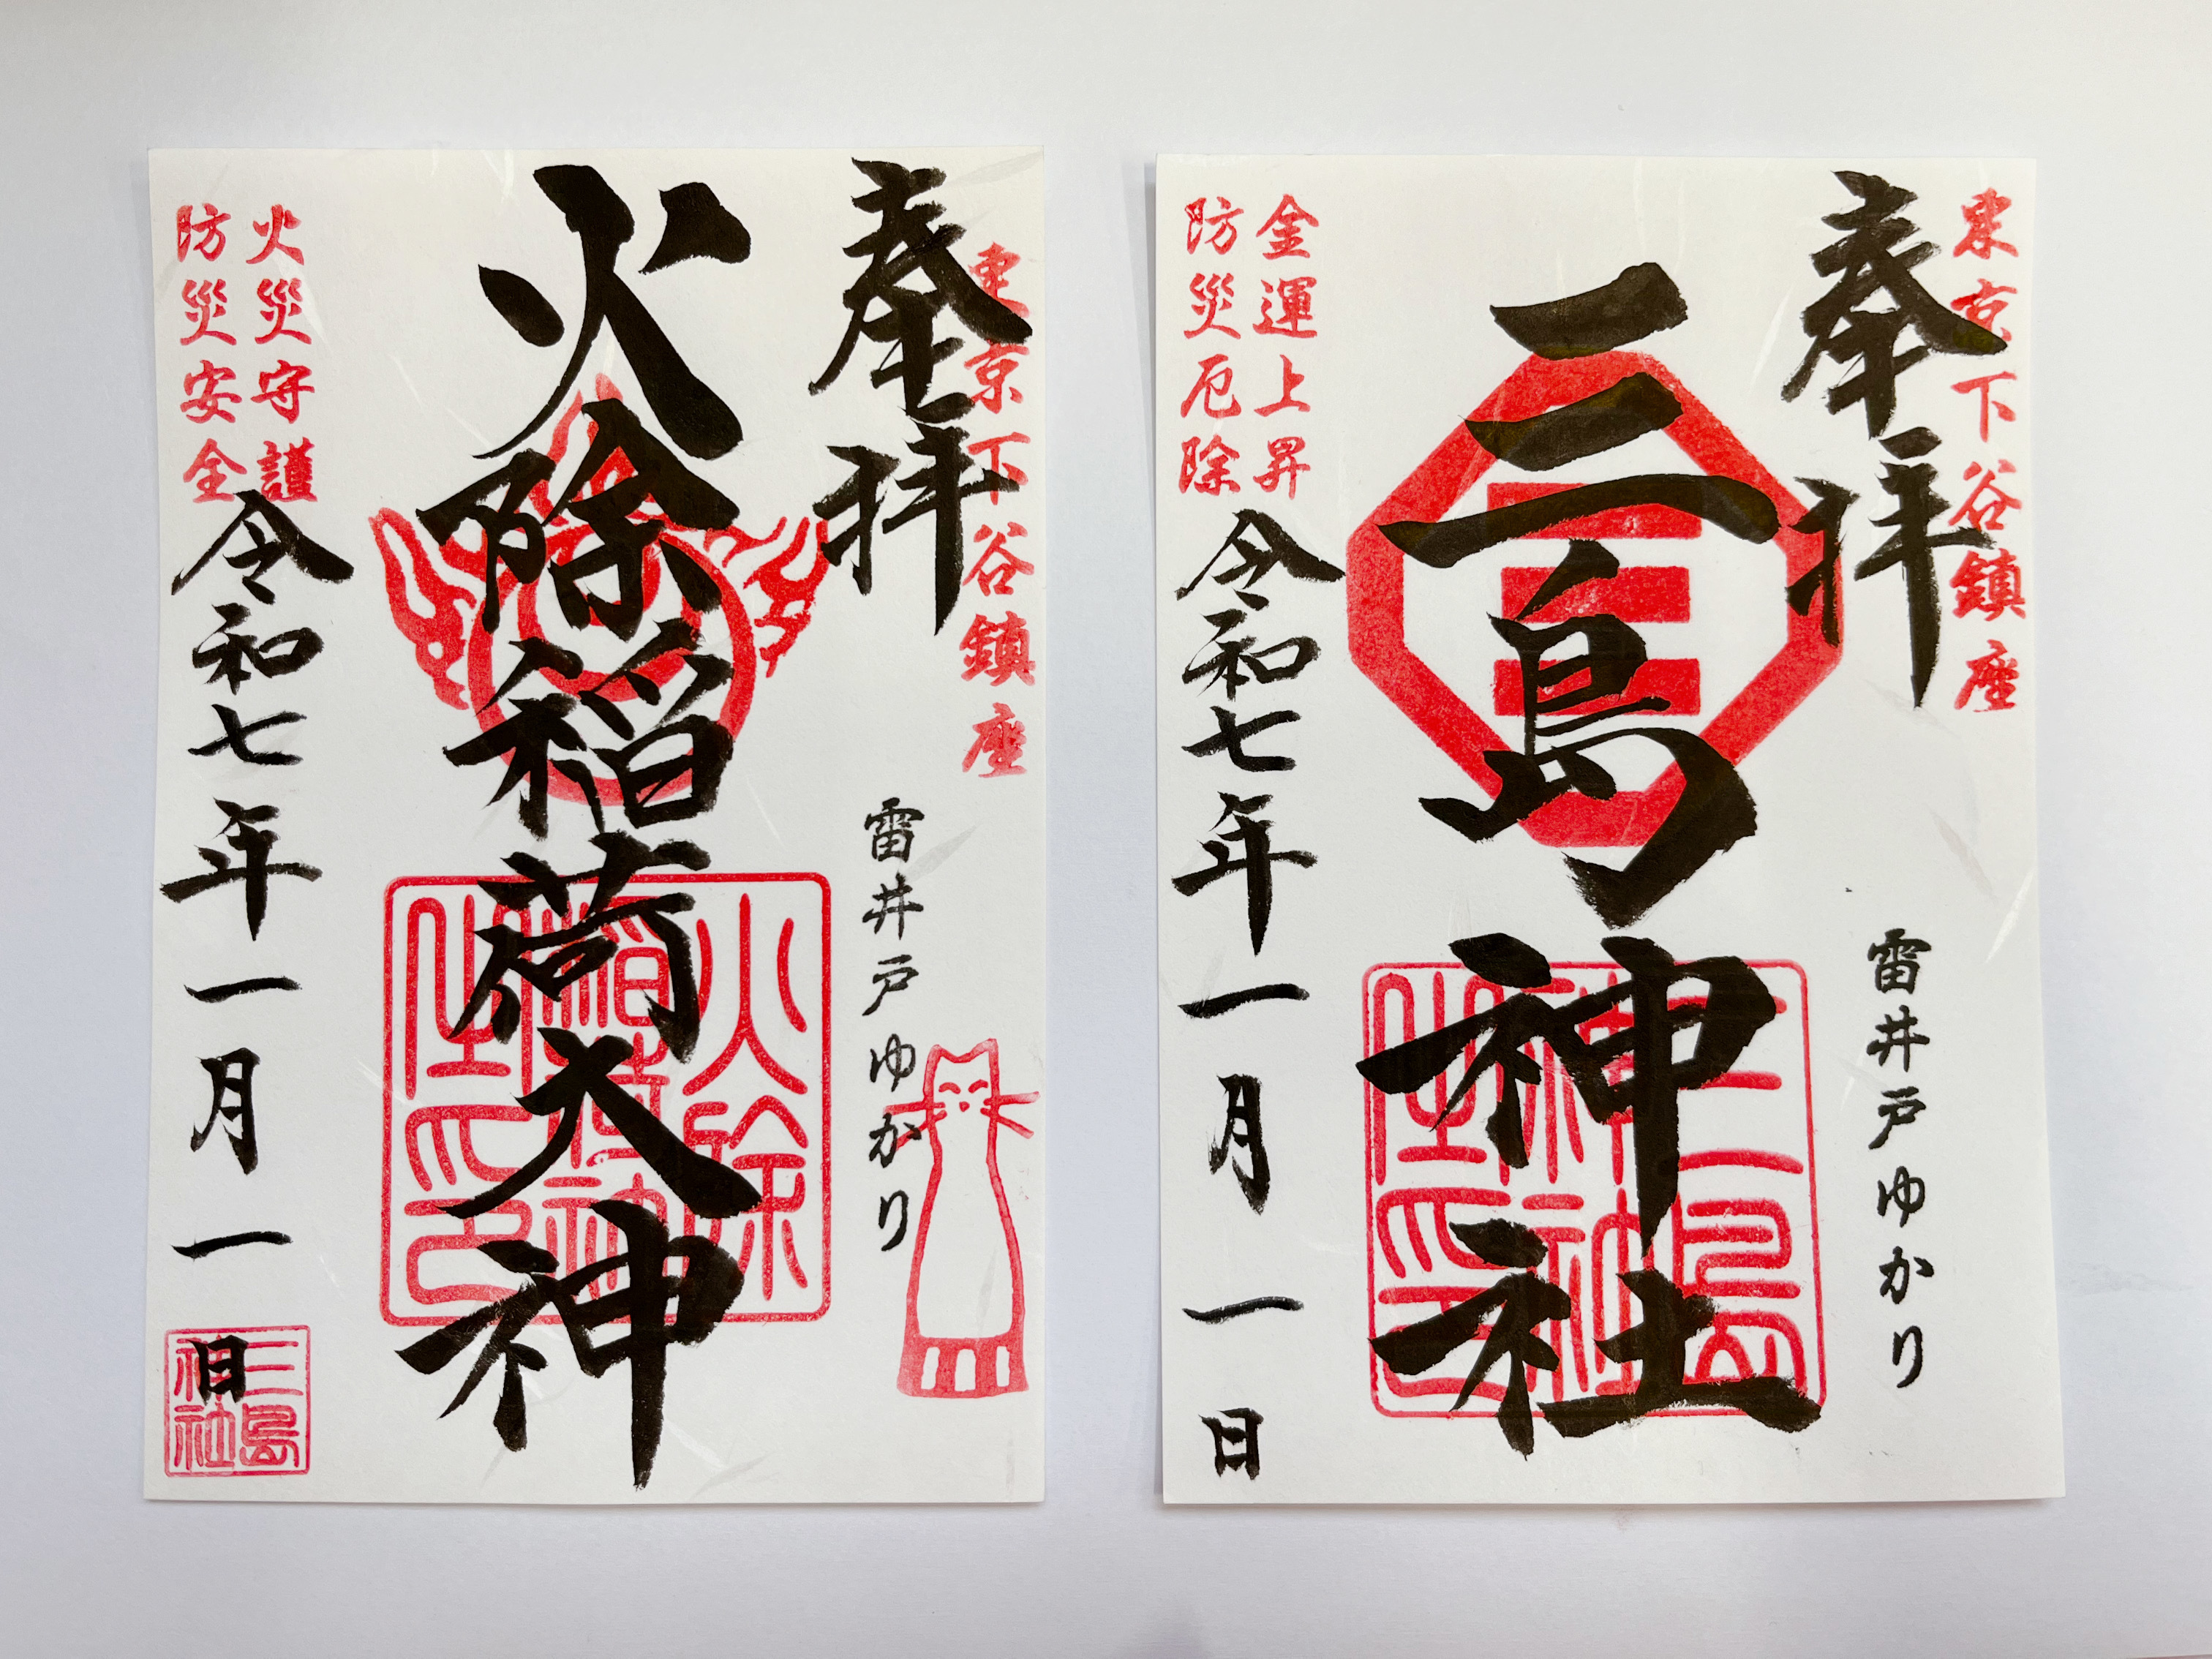 東京下谷鎮座
奉拝
雷井戸ゆかり
三島神社
三島神社之印
金運上昇
防災厄除
令和七年一月一日
東京下谷鎮座
奉拝
雷井戸ゆかり
火除稲荷大神
火災守護
防災安全
令和七年一月一日
三島神社